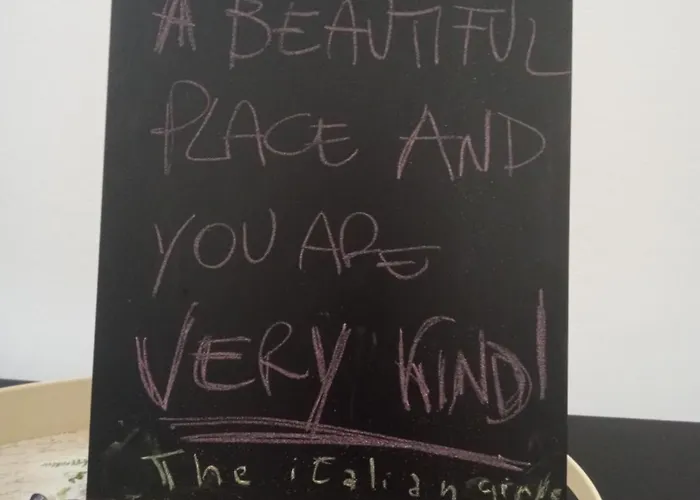 A BEAUTIFUL
PLACE AND
YOU ARE
VERY KIND!
The italian girls